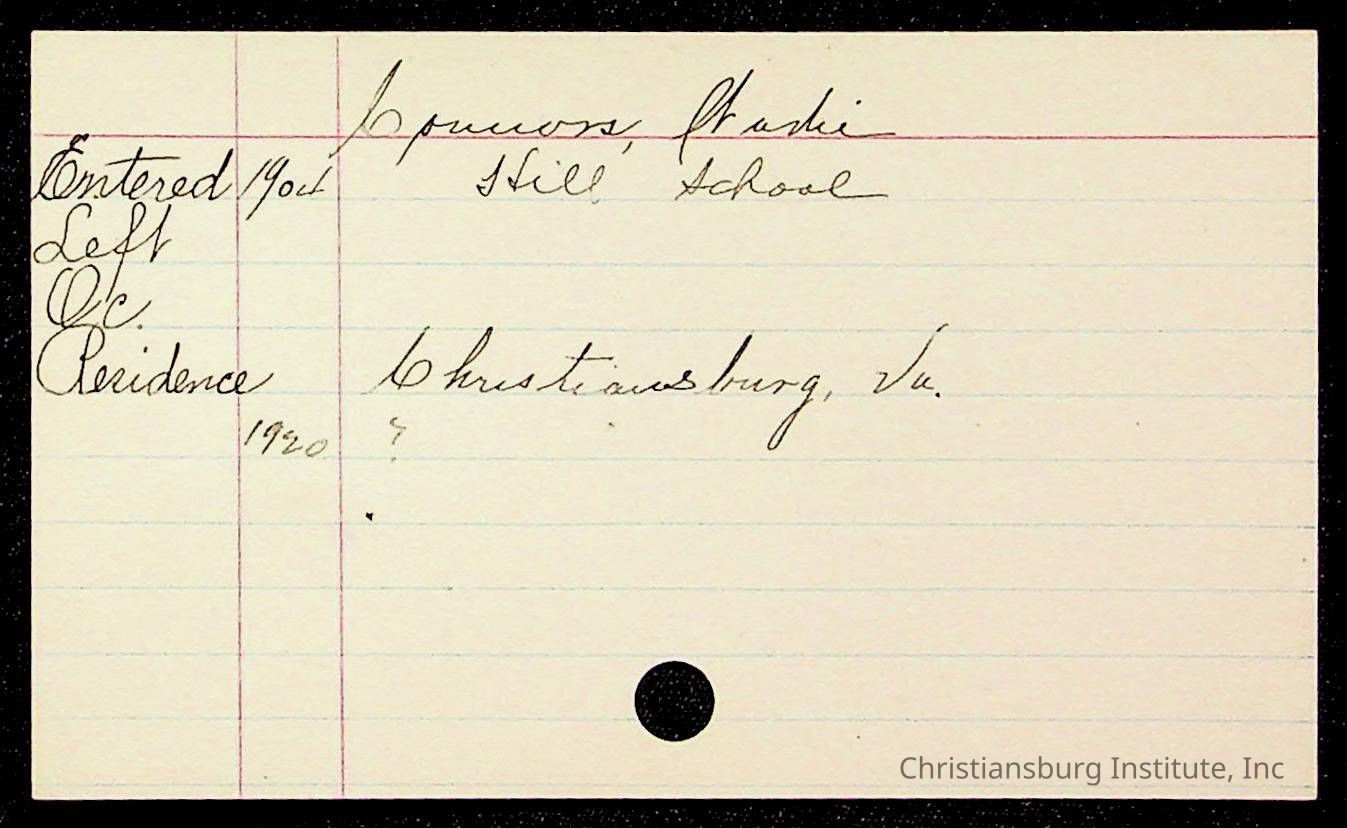 Connors,
Entered 1904 Hill School
Left
Oc.
Residence Christiansburg, Va.
1920 ?
Christiansburg Institute, Inc